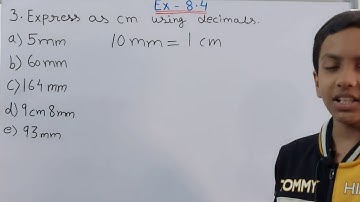 Ex - 8.4
3. Express as cm using decimals.
a) 5mm
10 mm = 1 cm
b) 60mm
c) 164 mm
d) 9cm 8mm
e) 93mm
TOMMY